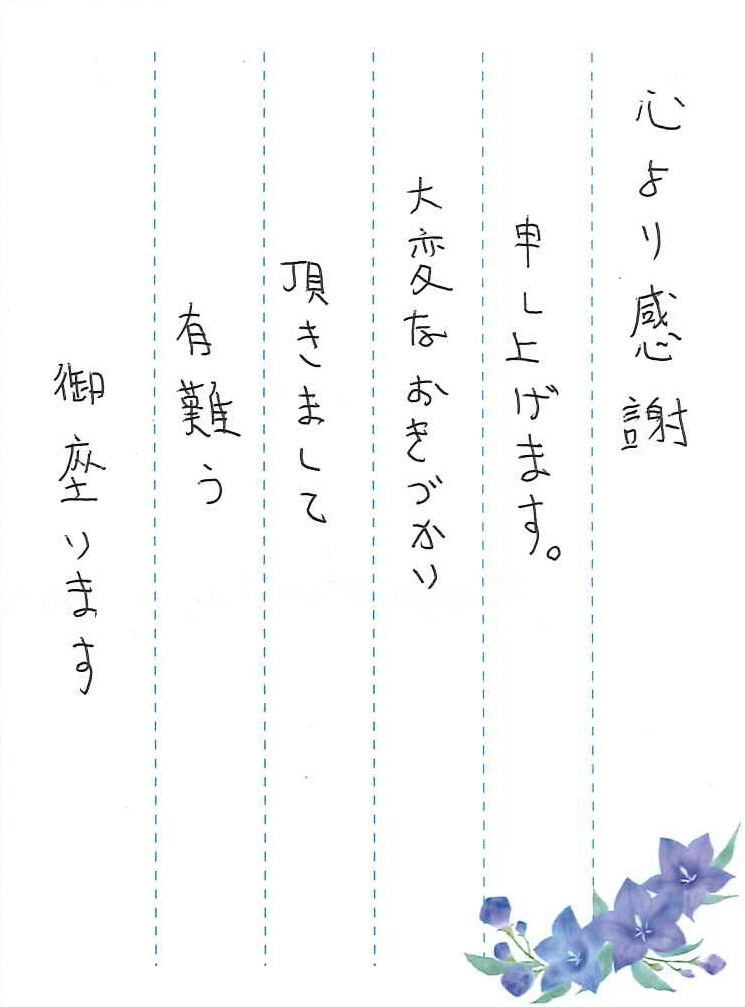 心より感謝
申し上げます。
大変なおきづかり
頂きまして
有難う
御座ります